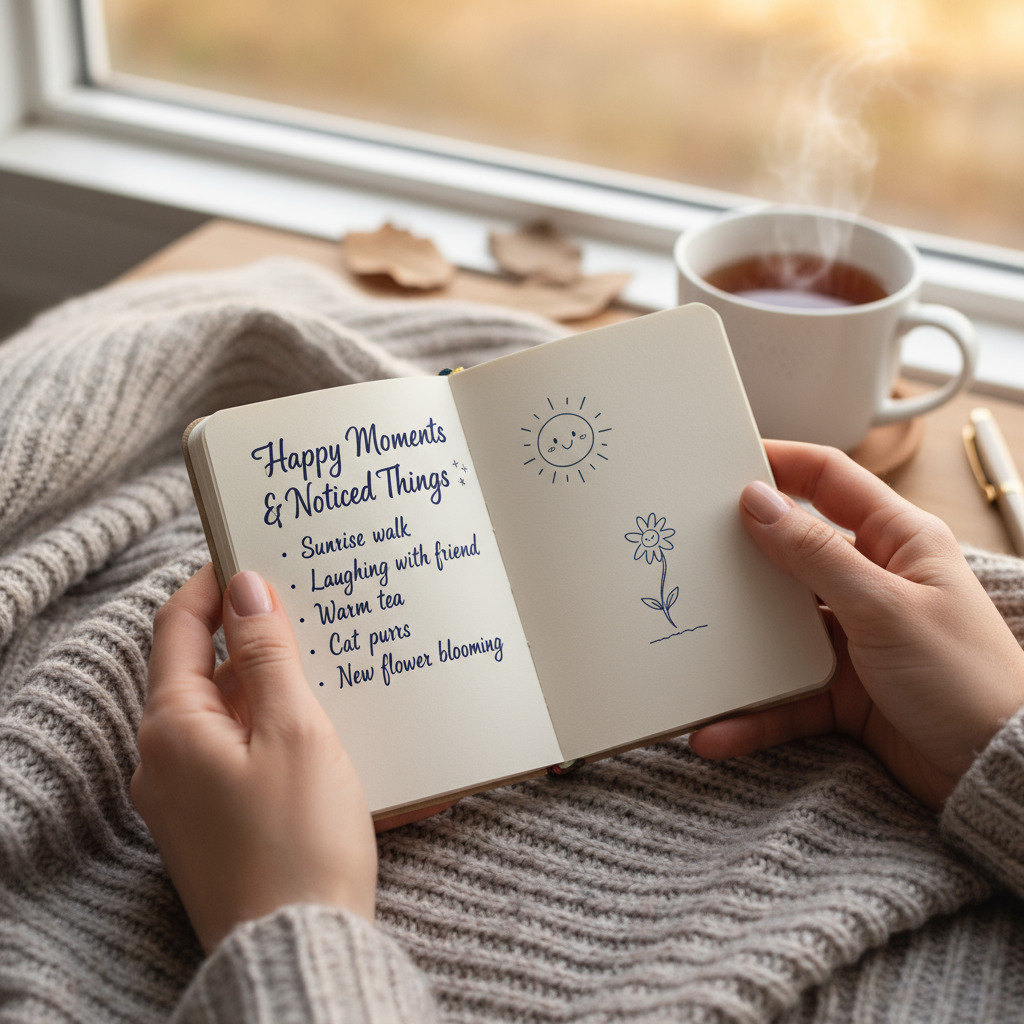 Happy Moments
& Noticed Things
• Sunrise walk
• Laughing with friend
• Warm tea
• Cat purrs
• New flower blooming